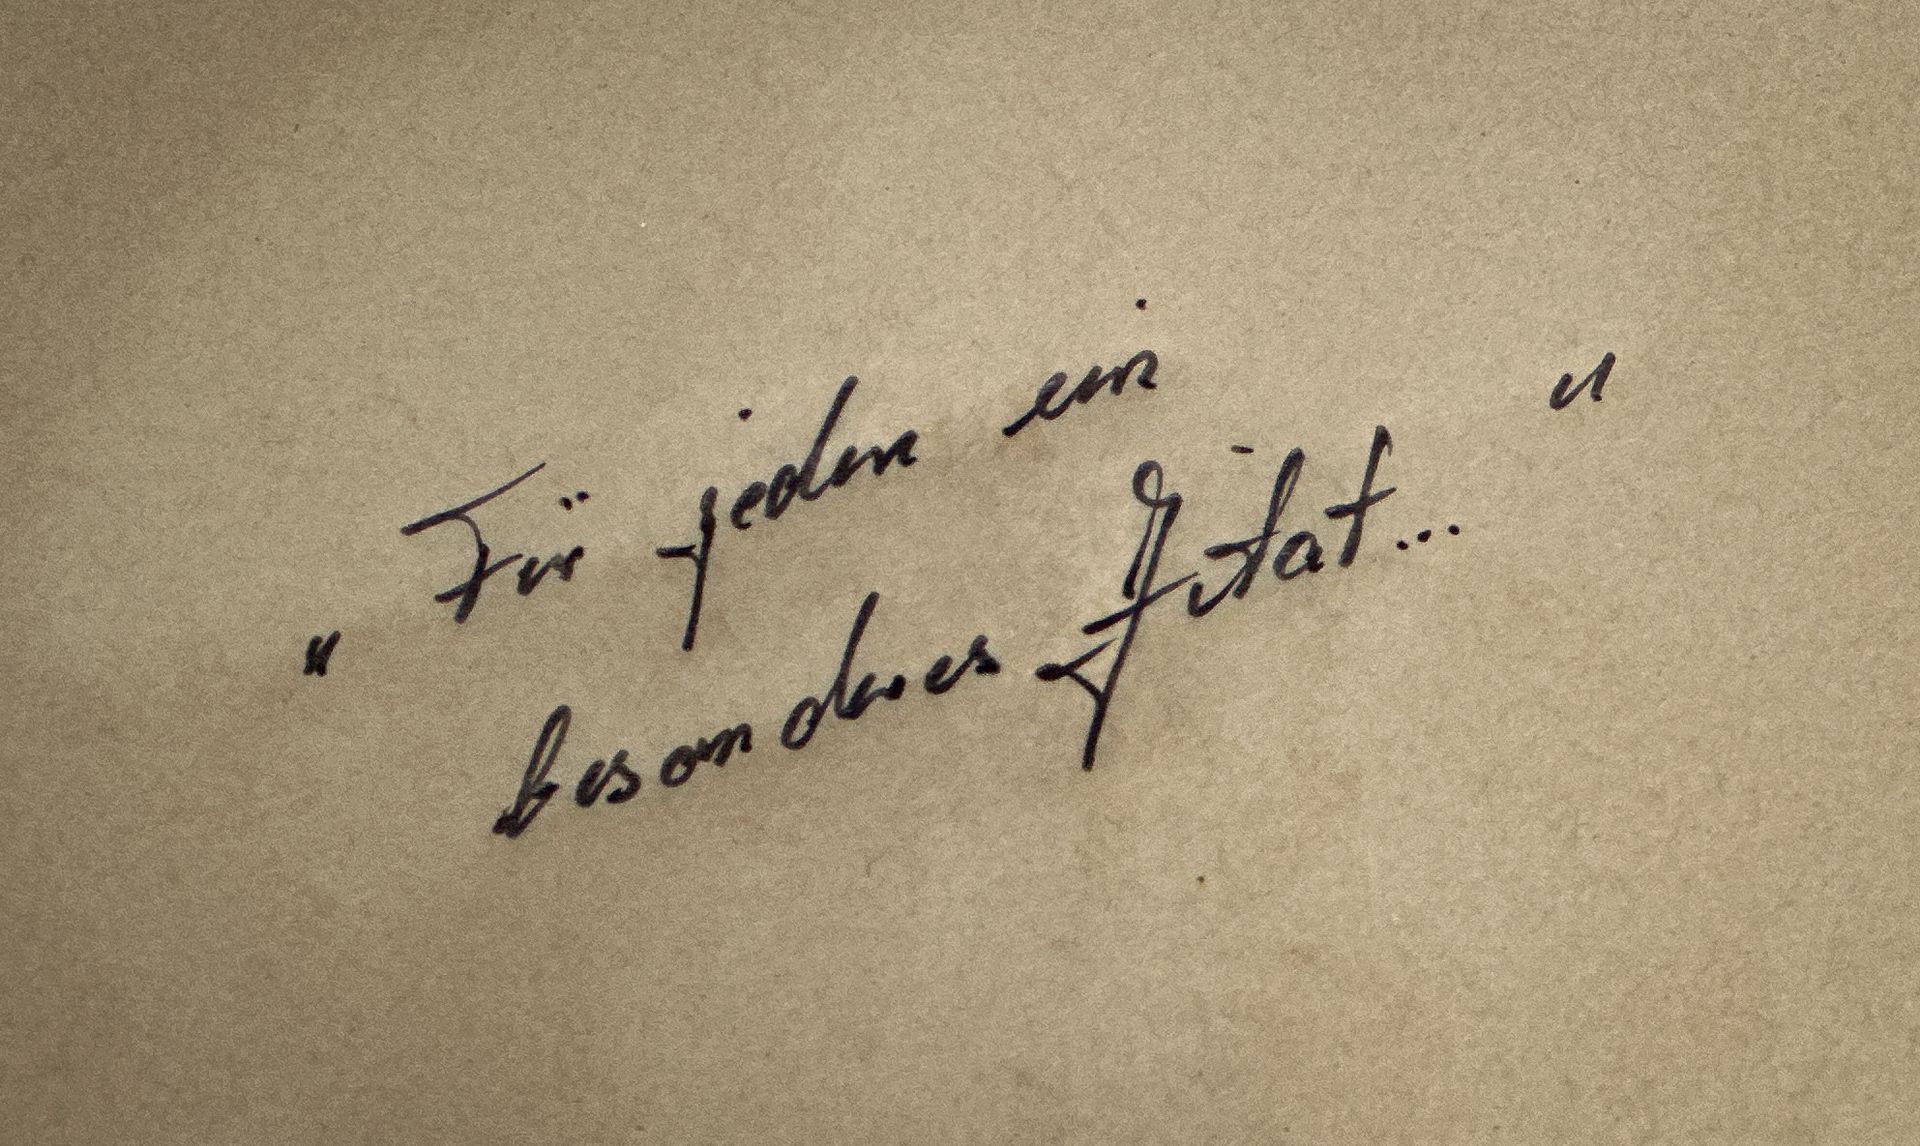 „Für jeden ein
besonderes Zitat..."